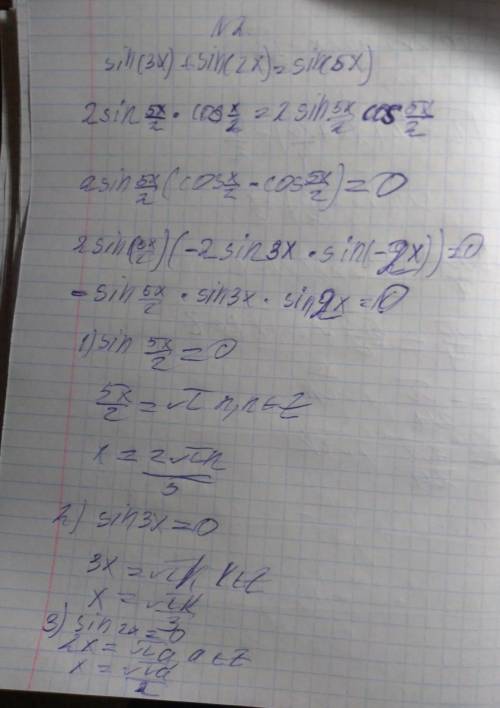 N2
sin(3x) + sin(2x) = sin(5x)
2sin 5x/2 · cos x/2 = 2sin 5x/2 cos 5x/2
2sin 5x/2 (cos x/2 - cos 5x/2) = 0
2sin(5x/2)(-2sin3x · sin(-2x)) = 0
- sin 5x/2 · sin3x · sin2x = 0
1) sin 5x/2 = 0
5x/2 = πn, n ∈ Z
x = 2πn/5
2) sin3x = 0
3x = πk k ∈ Z
x = πk/3
3) sin 2x = 0
2x = πa a ∈ Z
x = πa/2